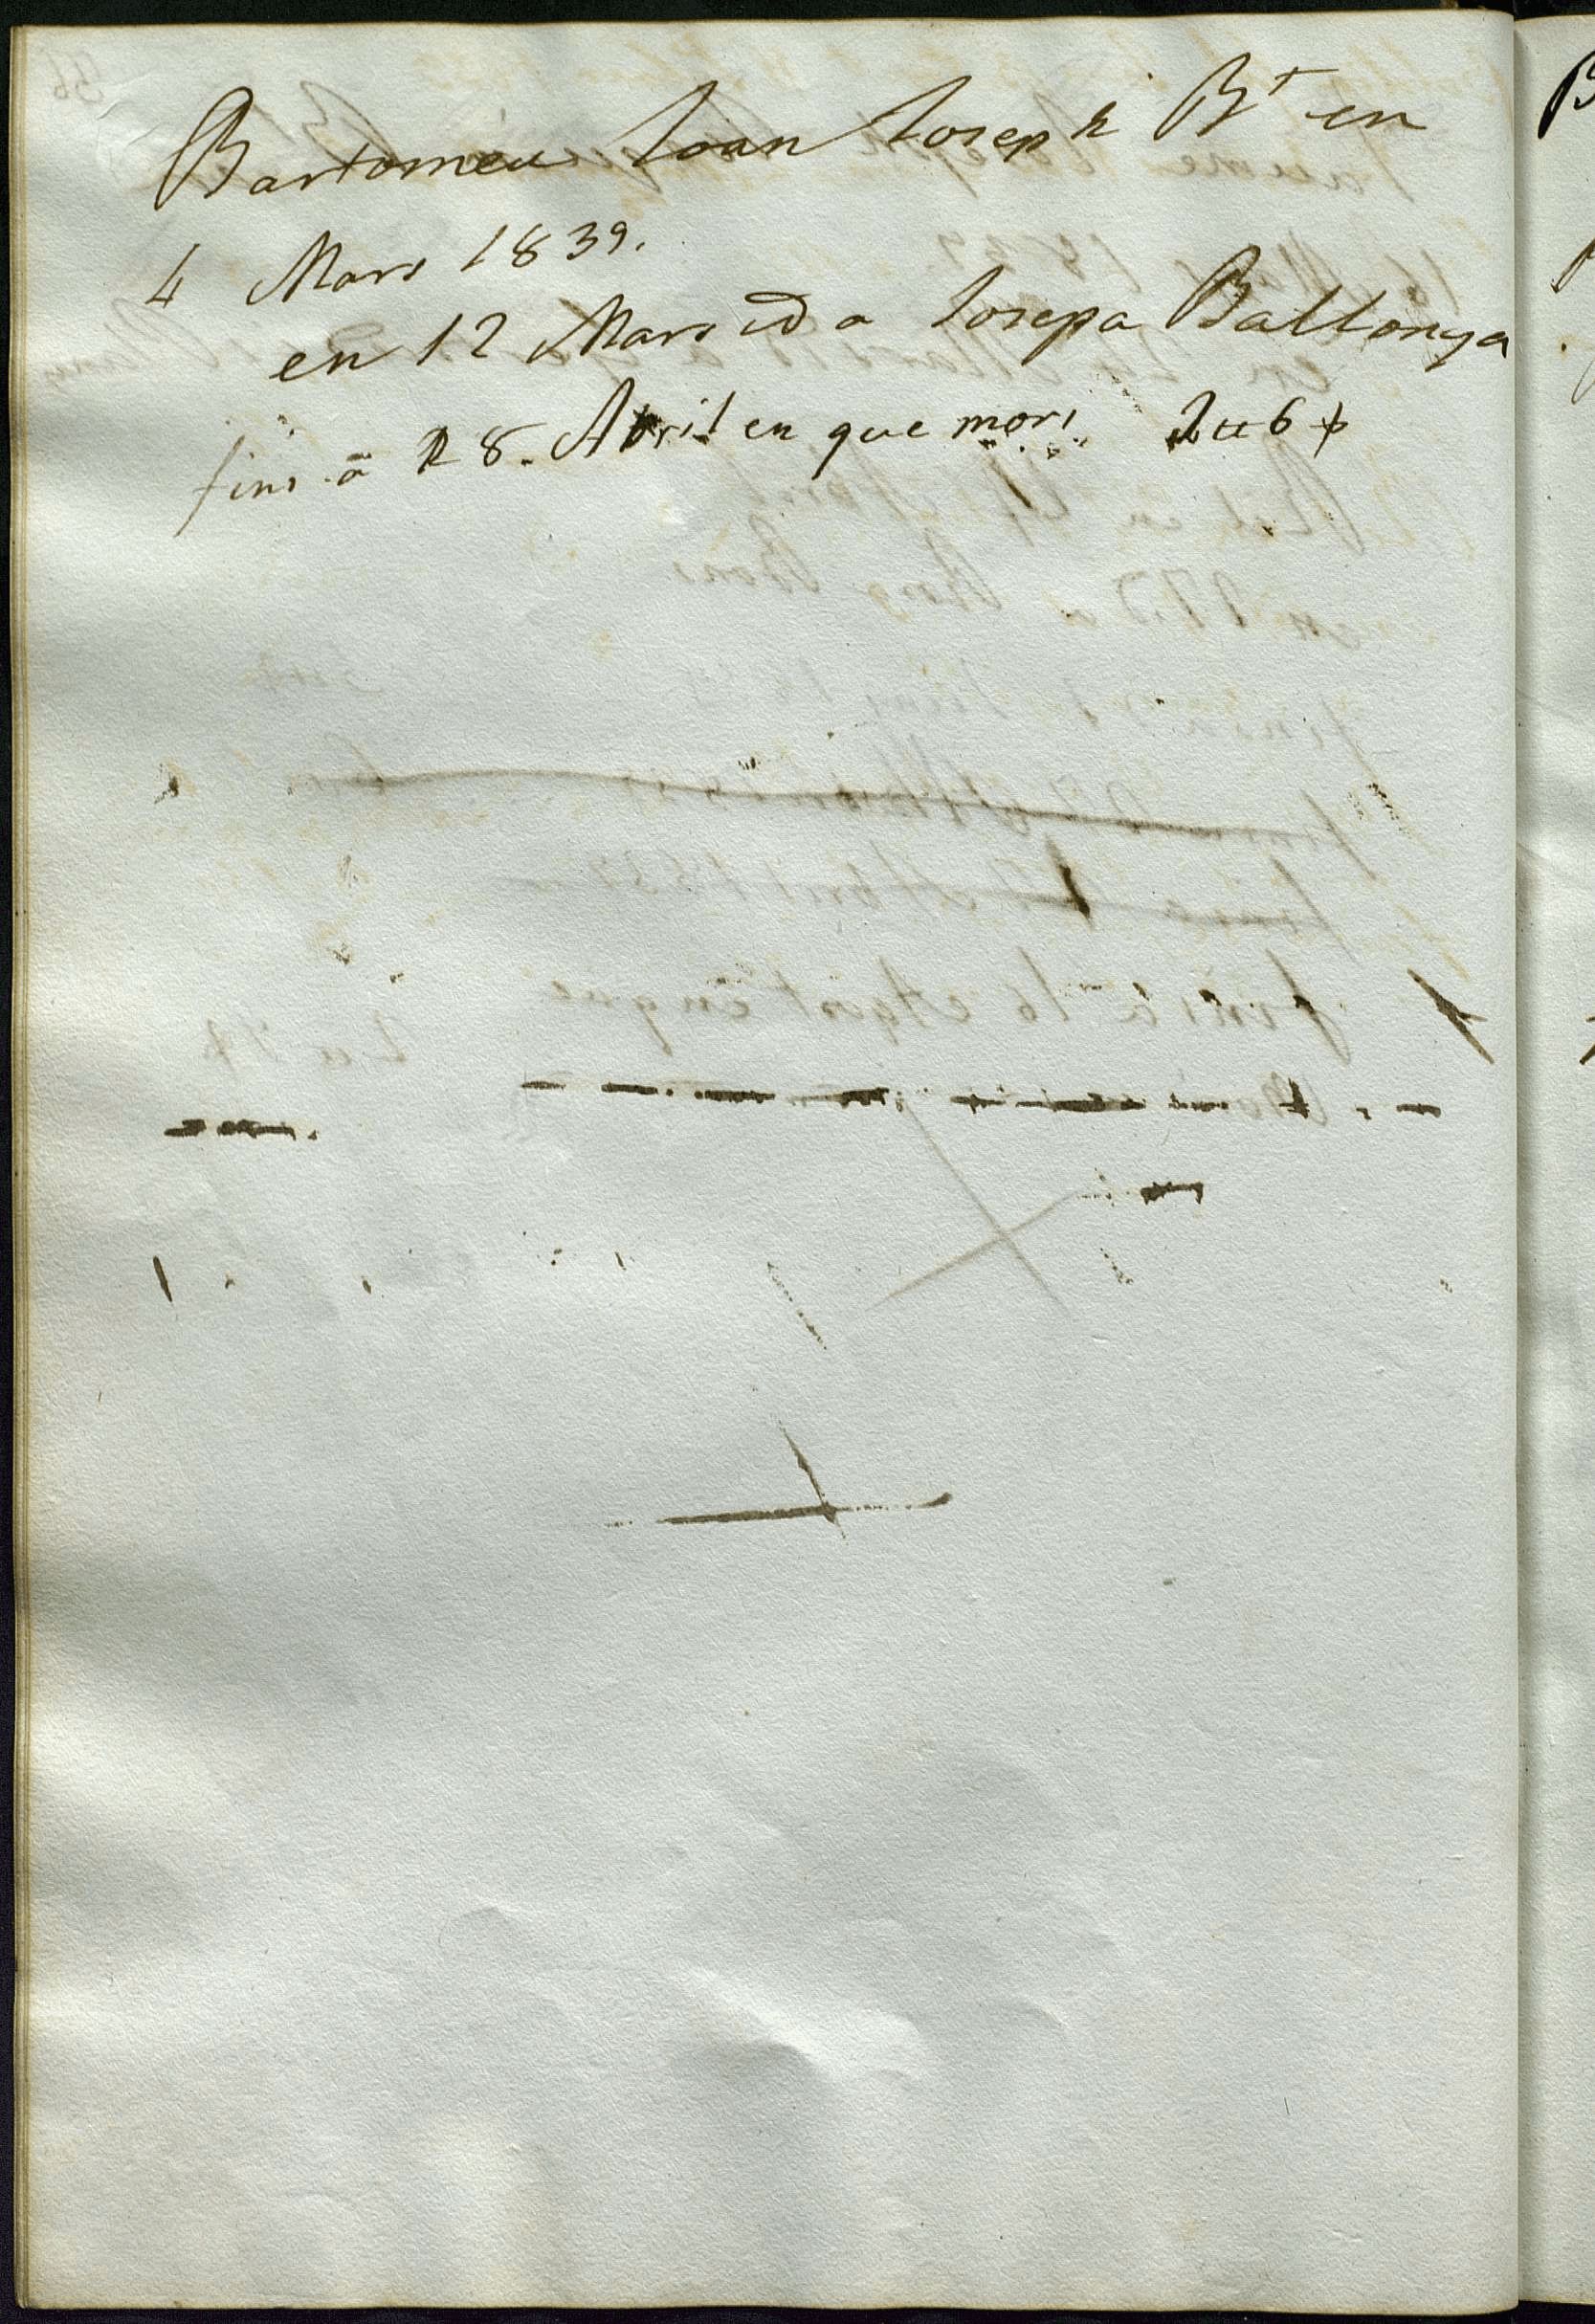 Bartomeu Joan Joseph Bt en
4 Mars 1839.
en 12 Mars id a Josepa Ballonga
fins a 28. Abril en que mori 2 6